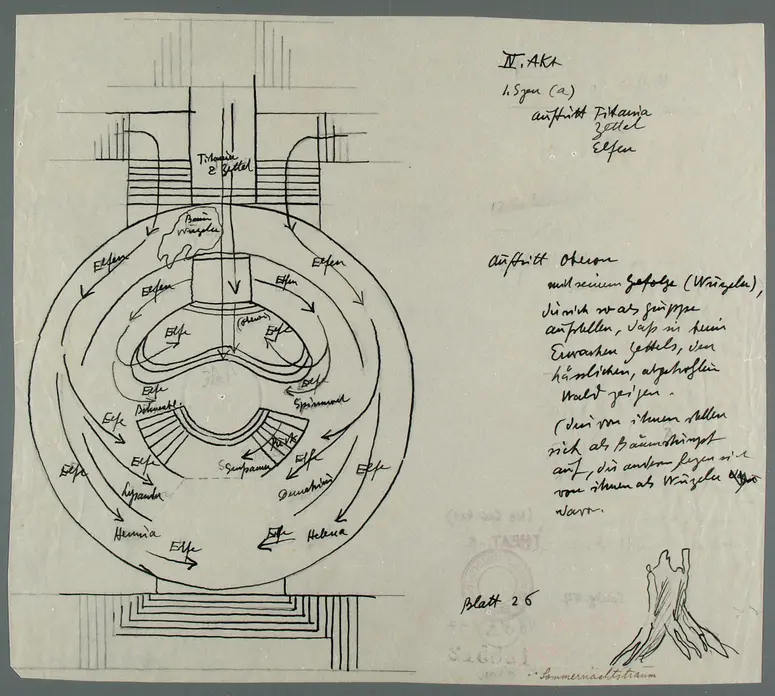 IV. Akt
1. Szen (a)
Auftritt Titania
Zettel
Elfen
Titania
& Zettel
Baum
Wurzeln
Elfen
Elfen
Elfen
Elfen
Elfe
(Oberon)
Elfe
Elfe
Elfe
Bohnenbl.
Spinnweb
Elfe
Puck
Elfe
Senfsamen
Elfe
Elfe
Elfe
Lysander
Demetrius
Hermia
Elfe
Elfe
Helena
Auftritt Oberon
mit seinem Gefolge (Wurzeln),
die sich so als Gruppe
aufstellen, daß sie beim
Erwachen Zettels, den
hässlichen, abgeholzten
Wald zeigen.
(drei von ihnen stellen
sich als Baumstumpf
auf, die andern legen sich
von ihnen als Wurzeln
davor.
Blatt 26
Sommernachtstraum